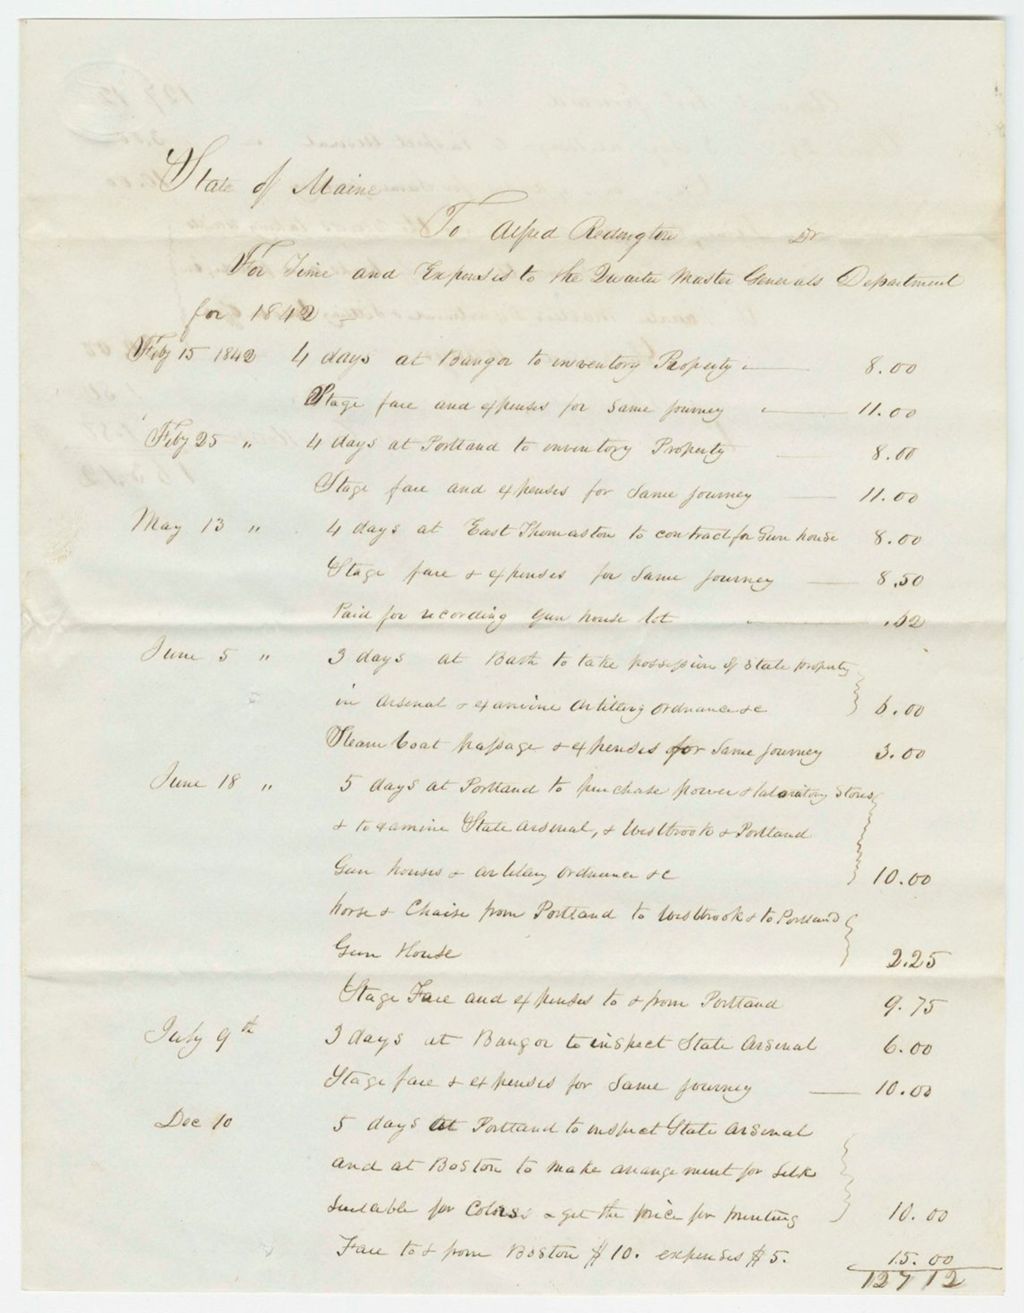 State of Maine
To Alfred Redington Dr
For Time and Expenses to the Quarter Master Generals Department
for 1842
Feby 15 1842 4 days at Bangor to inventory Property 8.00
Stage fare and expenses for Same Journey 11.00
Feby 25 " 4 days at Portland to inventory Property 8.00
Stage fare and expenses for Same Journey 11.00
May 13 " 4 days at East Thomaston to contract for Gun house 8.00
Stage fare & expenses for Same Journey 8.50
Paid for recording Gun house lot .62
June 5 " 3 days at Bath to take possession of State property
in Arsenal & examine Artillery Ordnance &c 6.00
Steam boat passage & expenses for Same Journey 3.00
June 18 " 5 days at Portland to purchase power & Laboratory Stores
& to examine State Arsenal, & Westbrook & Portland
Gun houses & artillery Ordnance &c 10.00
horse & Chaise from Portland to Westbrook & to Portland
Gun House 2.25
Stage Fare and expenses to & from Portland 9.75
July 9th 3 days at Bangor to inspect State Arsenal 6.00
Stage fare & expenses for Same Journey 10.00
Dec 10 5 days at Portland to inspect State Arsenal
and at Boston to make arrangement for Silk
Suitable for Colors & get the price for printing 10.00
Fare to & from Boston $10. expenses $5. 15.00
127 12